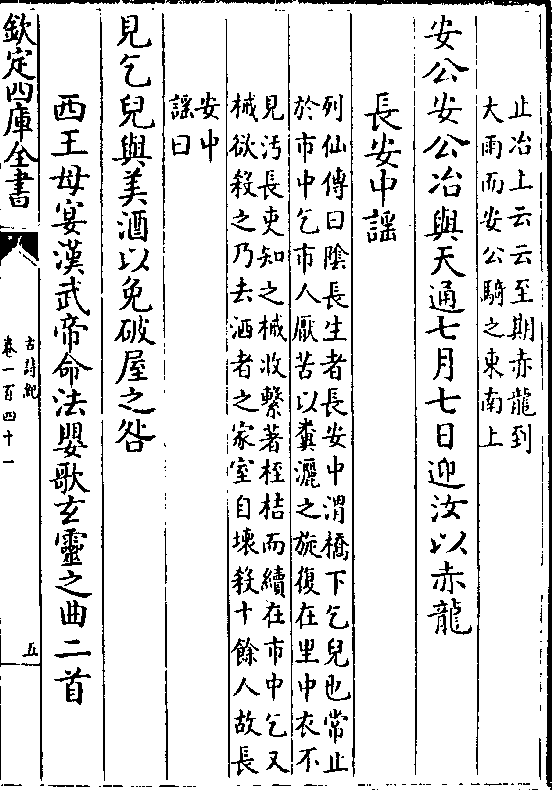 止冶上云云至期赤龍到
大雨而安公騎之東南上
安公安公冶與天通七月七日迎汝以赤龍
長安中謡
列仙傳曰隂長生者長安中渭橋下乞兒也常止
於市中乞市人厭苦以糞灑之旋復在里中衣不
見汚長吏知之械收繫著桎梏而續在市中乞又
械欲殺之乃去洒者之家室自壊殺十餘人故長
安中
謡曰
見乞兒與美酒以免破屋之咎
西王母宴漢武帝命法嬰歌玄靈之曲二首
欽定四庫全書
古詩紀
卷一百四十一
五